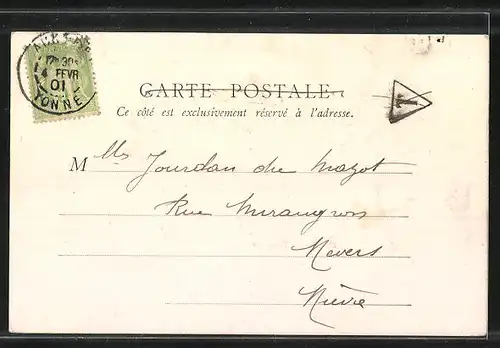 7 30
4 FEVR
01
YONNE
CARTE POSTALE
Ce côté est exclusivement réservé à l'adresse.
T
Mlls Jourdan du Mazot
Rue Mirangron
Nevers
Nièvre